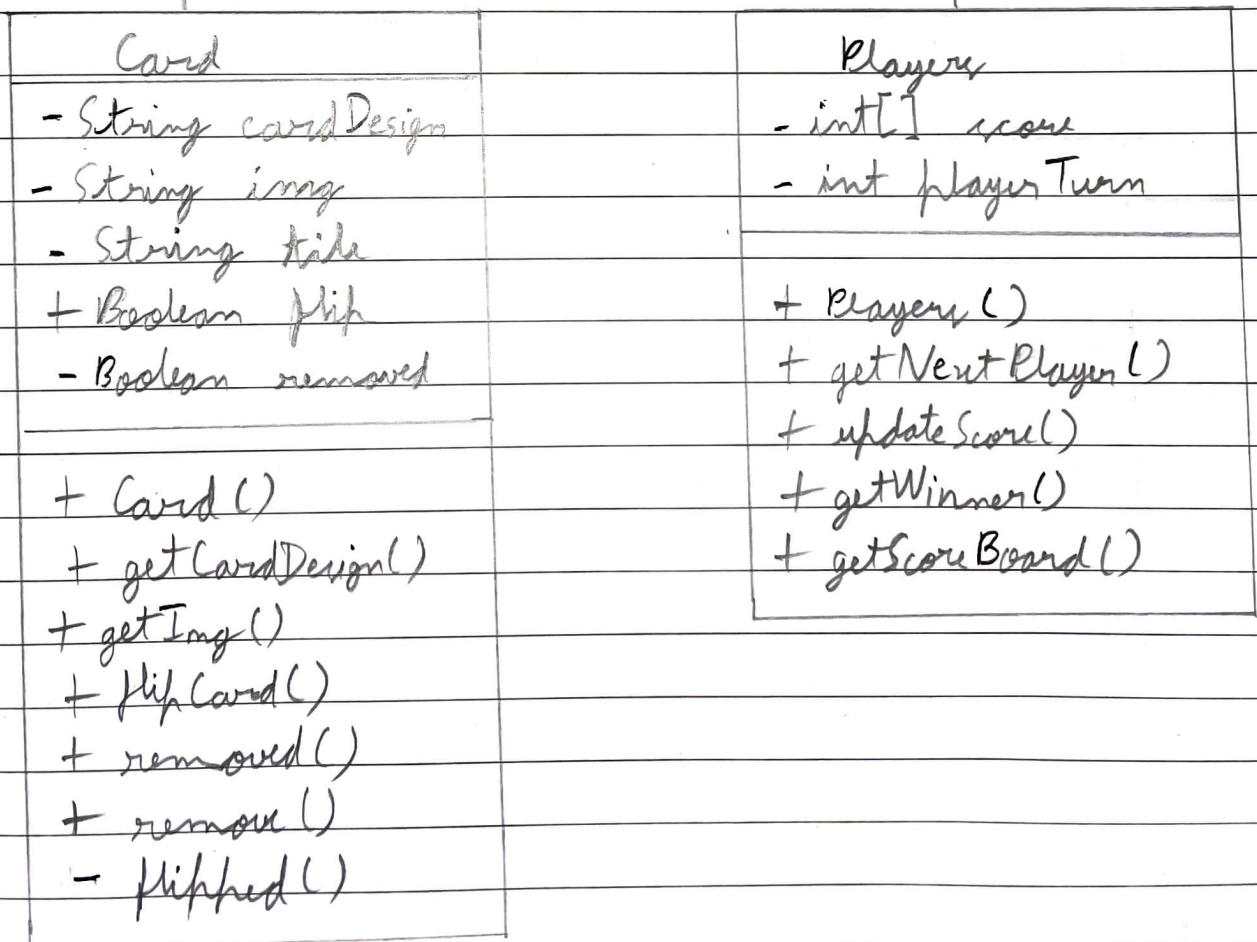 Card
- String cardDesign
- String img
- String tile
+ Boolean flip
- Boolean removed
+ Card()
+ getCardDesign()
+ getImg()
+ flipCard()
+ removed()
+ remove()
- flipped()
Players
- int[] score
- int playerTurn
+ Players()
+ getNextPlayer()
+ updateScore()
+ getWinner()
+ getScoreBoard()